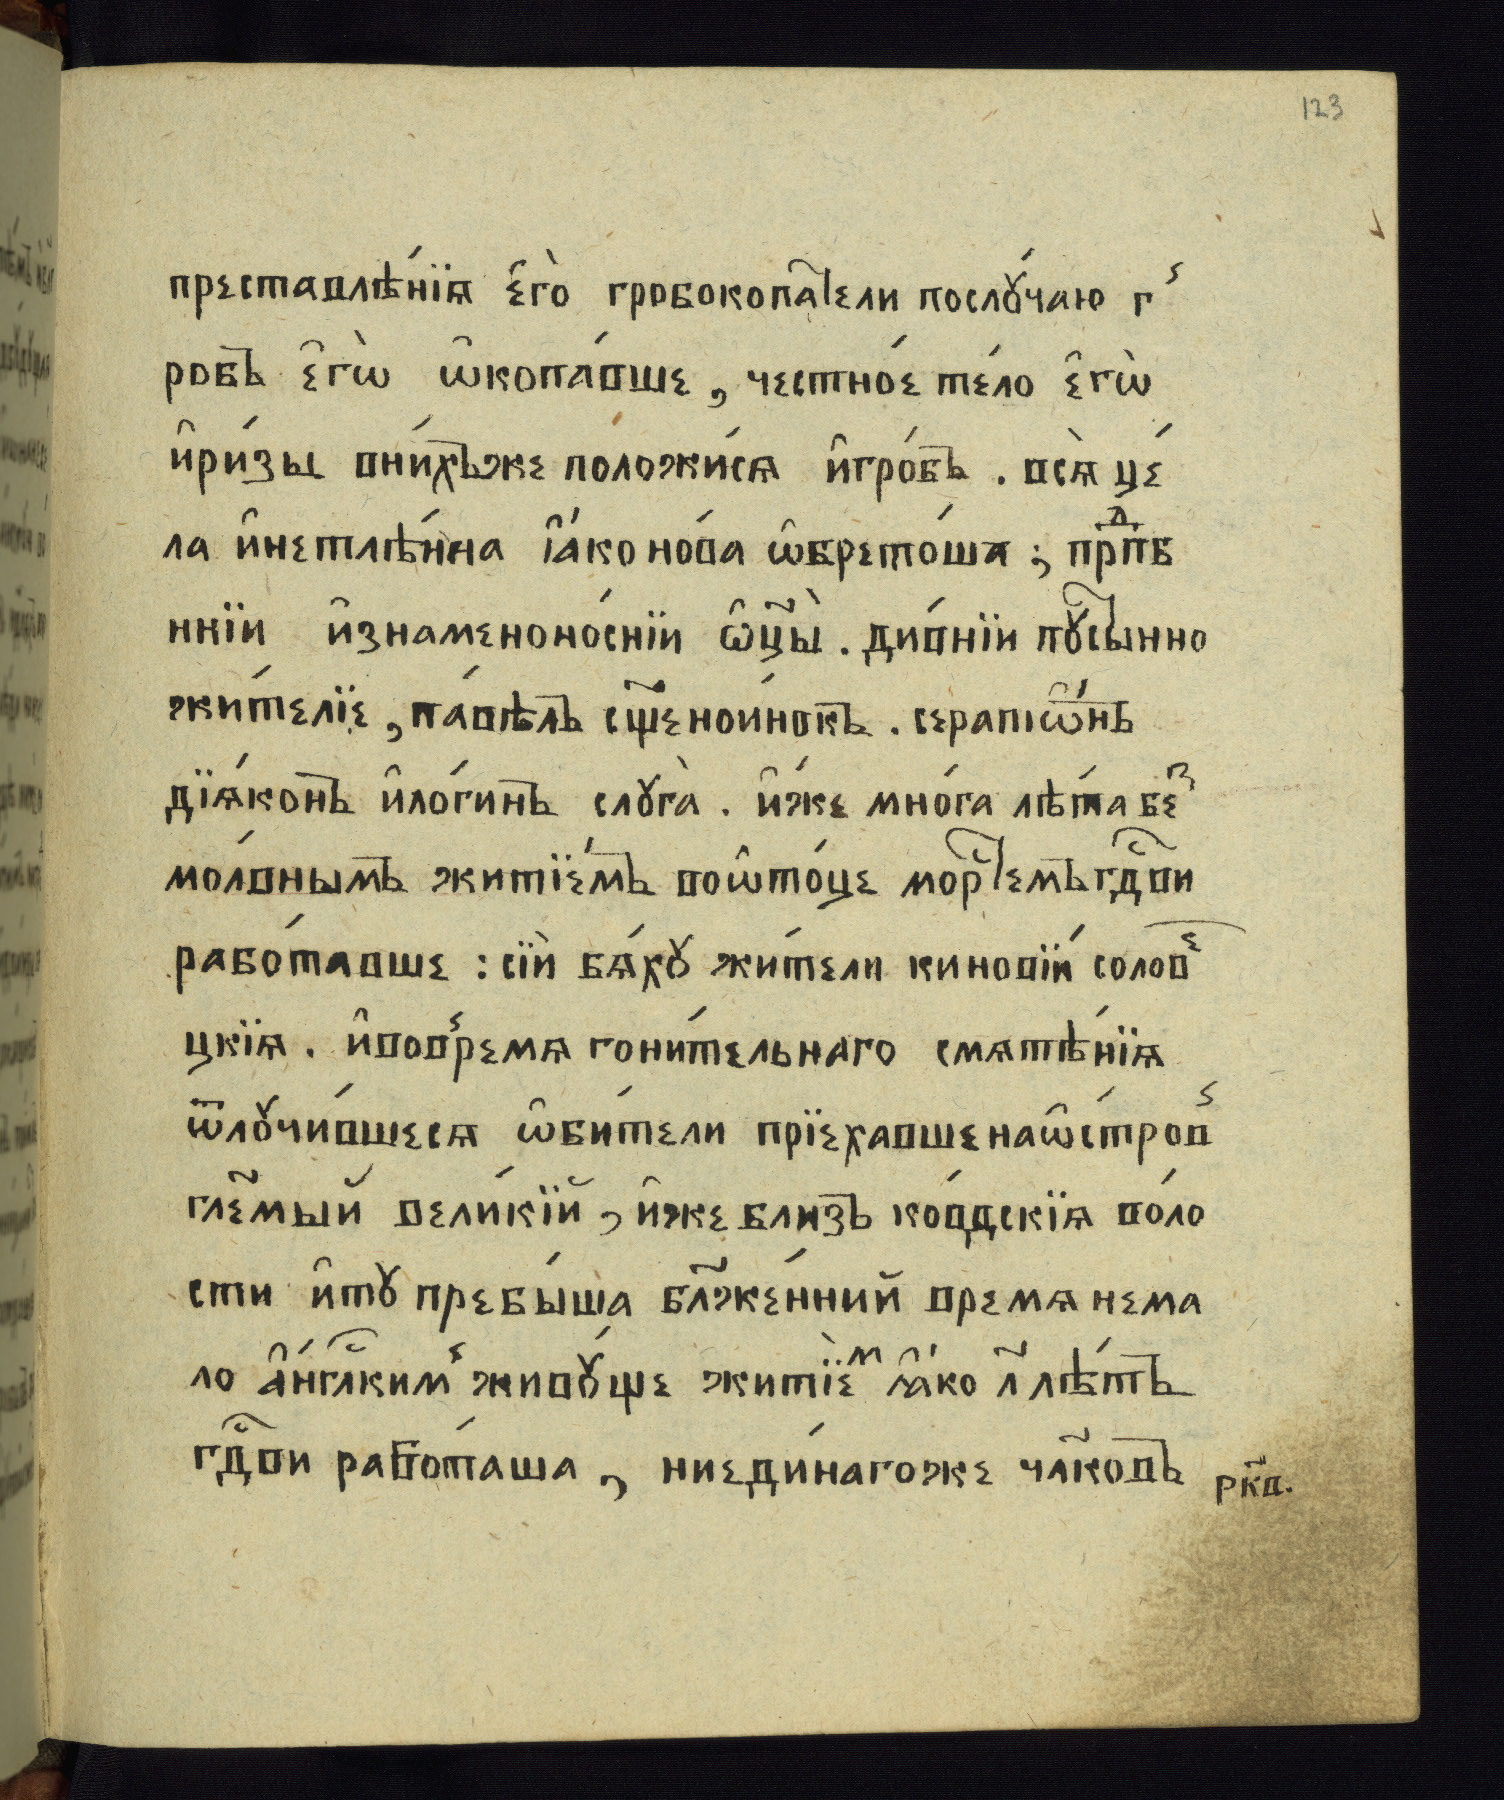 123
преставлѣ́нїѧ є҆го̀ гробокопа́тели послꙋ́чаю г
робъ є҆гѡ̀ ѡ҆копа́вше, честно́е те́ло є҆гѡ̀
и҆ри́зы вни́хъже положи́сѧ и҆гро́бъ. всѧ̀ це́
ла и҆нетлѣ́нна ꙗ҆́ко но́ва ѡ҆брето́ша; прпⷣб
нїи и҆знаменоно́снїи ѻ҆ц҃ы̀. ди́внїи пꙋсты́нно
жи́телїе, па́вѣлъ сщ҃еноинокъ. серапїѡ́нъ
дїѧ́конъ и҆ло́гинъ слꙋга̀. и҆́же мно́га лѣ́та беⷥ
мо́лвнымъ житїе́мъ воѡто́це морстемъ гдⷭ҇ви
рабо́тавше: сїѝ бѧ́хꙋ жи́тели кинові́й соловеⷩ
цкїѧ. и҆вовремѧ гони́тельнаго смѧтѣ́нїѧ
ѿлꙋчи́вшесѧ ѡ҆би́тели прїе́хавше наѡ҆́стров
гл҃емый вели́кїй, и҆́же близъ ко́вдскїѧ во́ло
сти и҆тꙋ пребы́ша бл҃же́нний времѧ нема
ло а҆́нгⷭ҇лким живꙋ́ще житїеⷨ ꙗ҆́ко л҃ лѣ́тъ
гдⷭ҇ви рабо́таша, ниеди́нагоже чл҃ковъ
рк҃в.